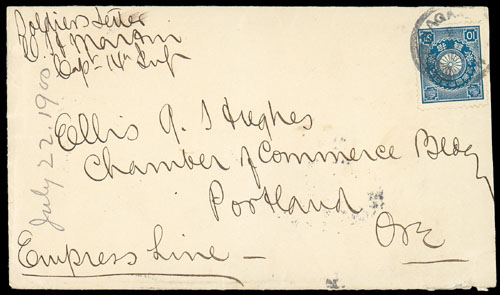 Soldiers Letter
Capt 14" Inf
July 22. 1900
Ellis G. Hughes
Chamber of Commerce Bldg
Portland
Ore
Empress Line —
AGA
10